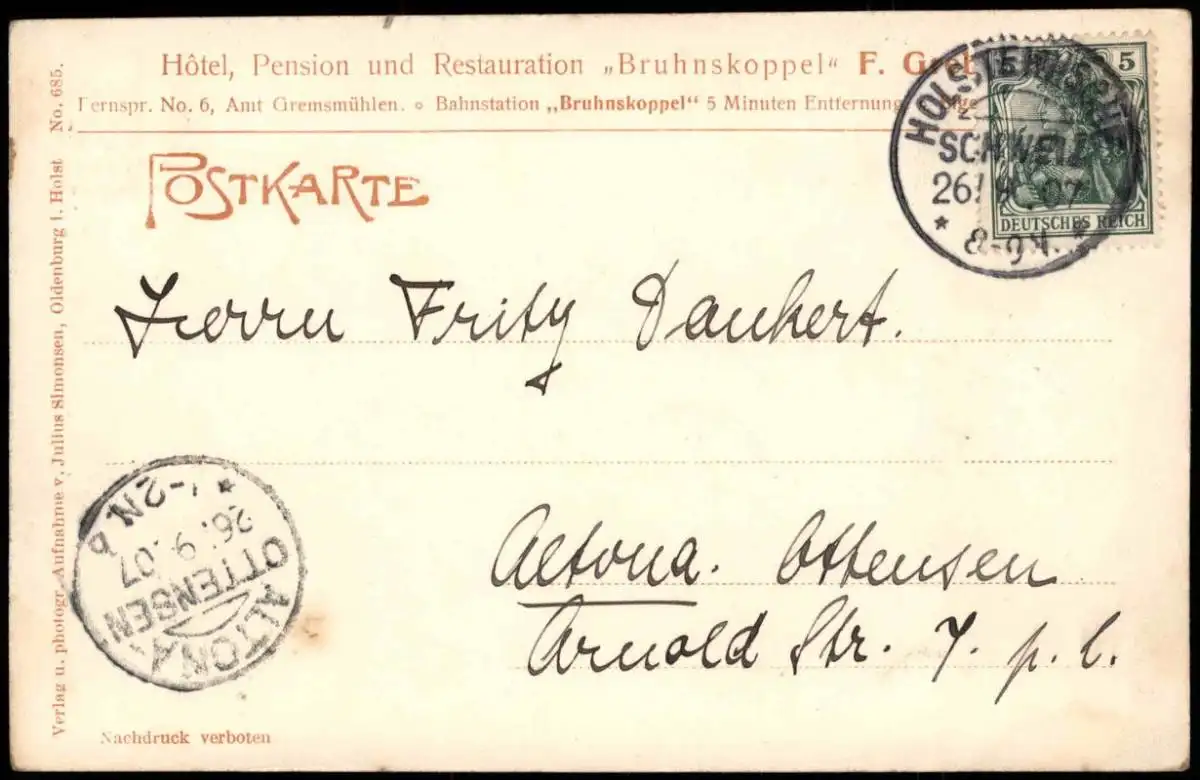 Hôtel, Pension und Restauration „Bruhnskoppel“ F.
Fernspr. No. 6, Amt Gremsmühlen. o Bahnstation „Bruhnskoppel“ 5 Minuten Entfernung
POSTKARTE
5 5
DEUTSCHES REICH
HOLSTEINISCHE
SCHWEIZ
26. 07
* 8-9N. *
Herrn Fritz Dankert.
Altona. Ottensen
Arnold Str. 7. p. l.
ALTONA-
OTTENSEN
26. 9. 07
1-2N. b
*
Verlag u. photogr. Aufnahme v. Julius Simonsen, Oldenburg i. Holst No. 685.
Nachdruck verboten